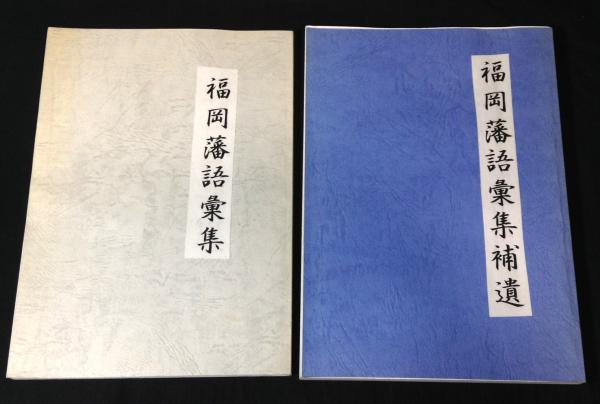 福岡藩語彙集
福岡藩語彙集補遺